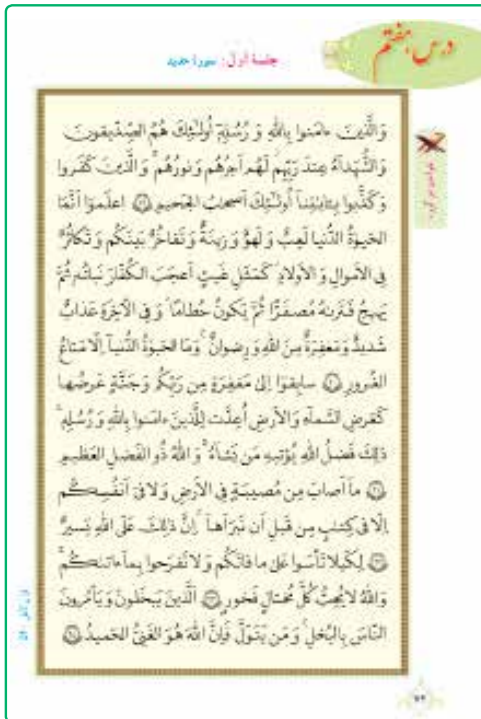 درس هفتم
جلسهٔ اول: سورهٔ حدید
وَالَّذينَ ءامَنوا بِاللهِ وَ رُسُلِهٖٓ اُولٰئِكَ هُمُ الصِّدّيقونَ
وَالشُّهَدآءُ عِندَ رَبِّهِم لَهُم اَجرُهُم وَ نورُهُم وَالَّذينَ كَفَروا
وَ كَذَّبوا بِـٔايٰتِنآ اُولٰئِكَ اَصحٰبُ الجَحيمِ ١٩ اِعلَموٓا اَنَّمَا
الحَيوٰةُ الدُّنيا لَعِبٌ وَ لَهوٌ وَ زينَةٌ وَ تَفاخُرٌ بَينَكُم وَ تَكاثُرٌ
فِى الاَموالِ وَ الاَولادِ كَمَثَلِ غَيثٍ اَعجَبَ الكُفّارَ نَباتُهٗ ثُمَّ
يَهيجُ فَتَرىٰهُ مُصفَرًّا ثُمَّ يَكونُ حُطامًا وَ فِى الاٰخِرَةِ عَذابٌ
شَديدٌ وَ مَغفِرَةٌ مِنَ اللهِ وَ رِضوانٌ وَمَا الحَيوٰةُ الدُّنيآ اِلّا مَتاعُ
الغُرورِ ٢٠ سابِقوٓا اِلىٰ مَغفِرَةٍ مِن رَبِّكُم وَ جَنَّةٍ عَرضُها
كَعَرضِ السَّمآءِ وَالاَرضِ اُعِدَّت لِلَّذينَ ءامَنوا بِاللهِ وَ رُسُلِهٖ
ذٰلِكَ فَضلُ اللهِ يُؤتيهِ مَن يَشآءُ وَ اللهُ ذُو الفَضلِ العَظيمِ
٢١ مآ اَصابَ مِن مُصيبَةٍ فِى الاَرضِ وَ لا فىٓ اَنفُسِكُم
اِلّا فى كِتٰبٍ مِن قَبلِ اَن نَبرَاَهآ اِنَّ ذٰلِكَ عَلَى اللهِ يَسيرٌ
٢٢ لِكَيلا تَأسَوا عَلىٰ ما فاتَكُم وَ لا تَفرَحوا بِمآ ءاتىٰكُم
وَاللهُ لا يُحِبُّ كُلَّ مُختالٍ فَخورٍ ٢٣ اَلَّذينَ يَبخَلونَ وَ يَأمُرونَ
النّاسَ بِالبُخلِ وَ مَن يَتَوَلَّ فَاِنَّ اللهَ هُوَ الغَنِىُّ الحَميدُ ٢٤